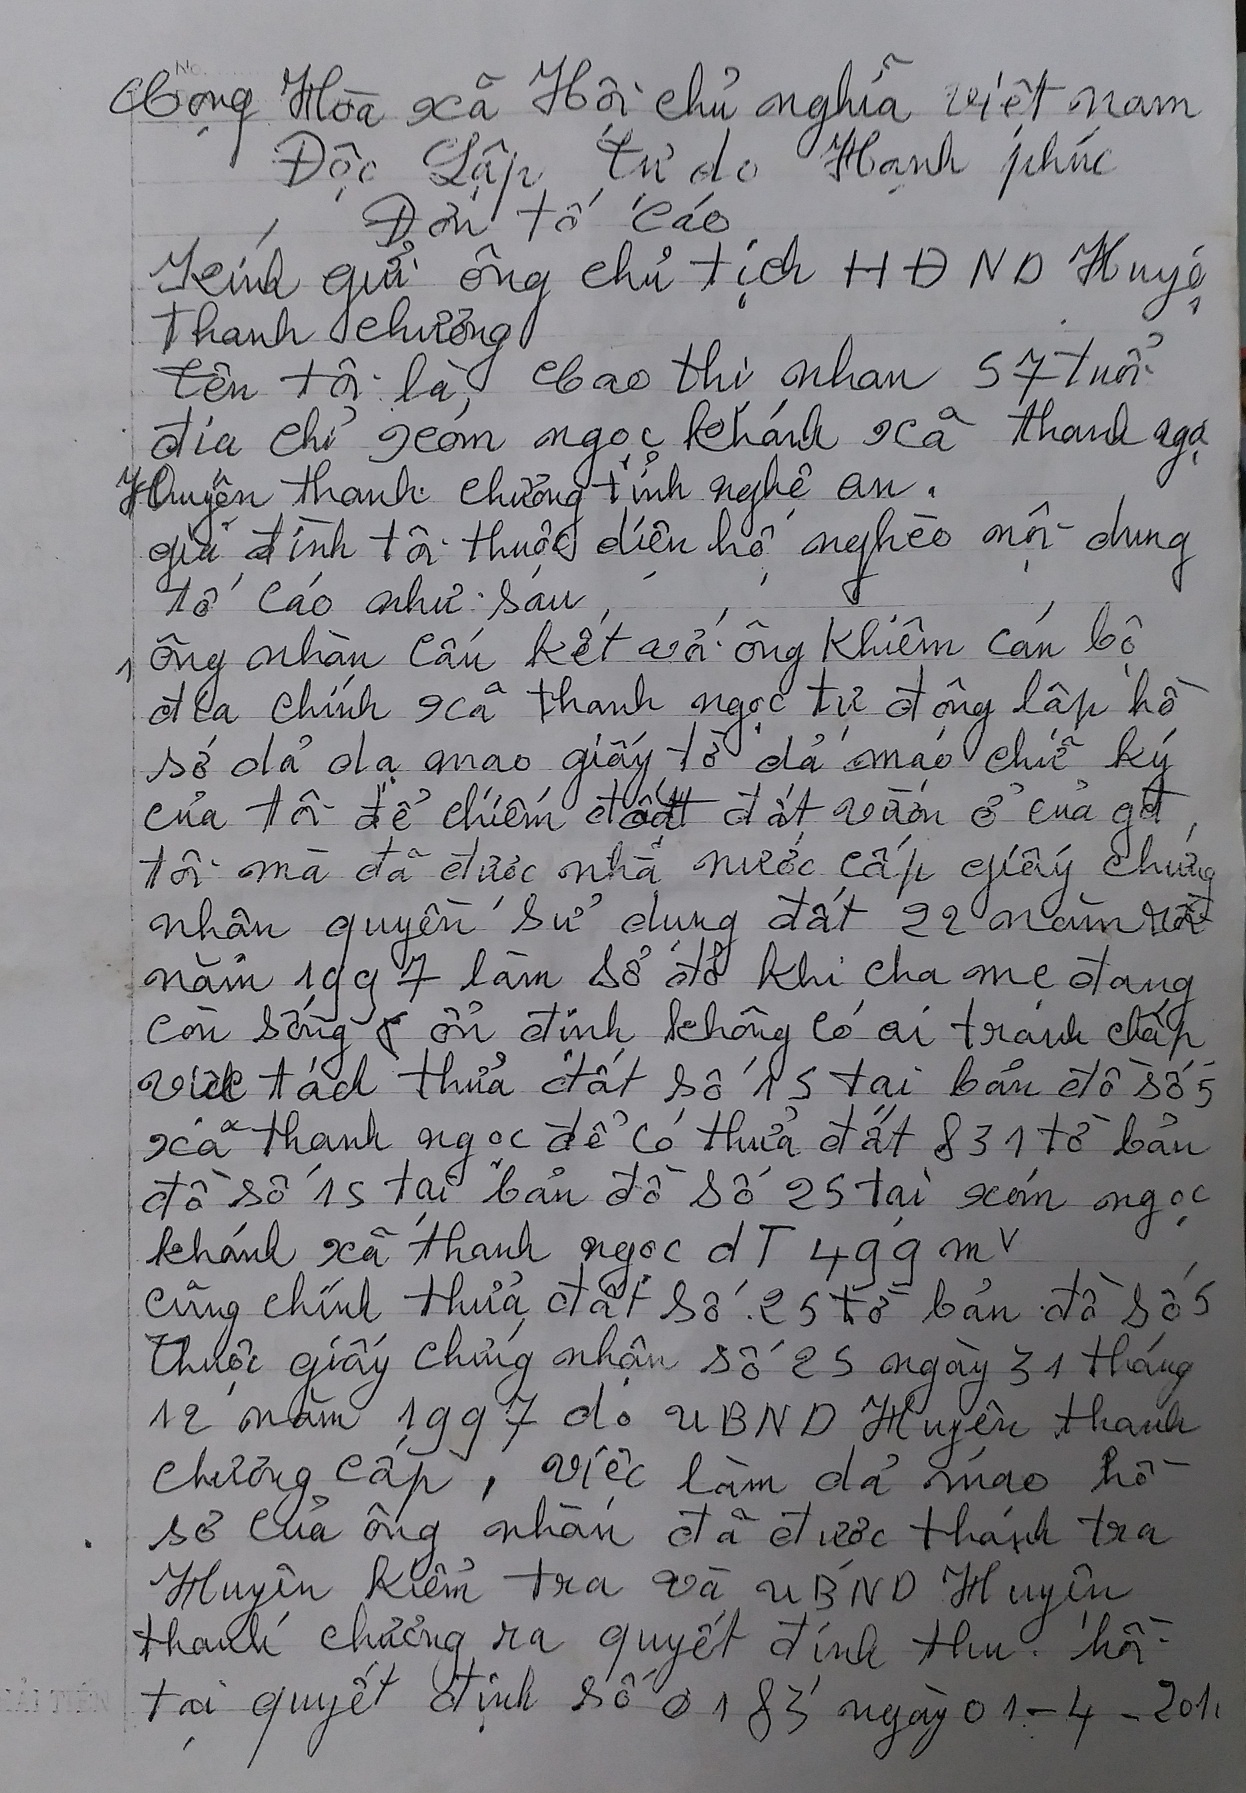 Cộng Hòa xã Hội chủ nghĩa việt nam
Độc Lập Tự do Hạnh phúc
Đơn tố cáo
Kính gửi ông chủ tịch HĐND Huyệ
Thanh chương
tên tôi là, Cao thị nhan 57 tuổi
địa chỉ xóm ngọc khánh xã thanh ngọ
Huyện thanh chương tỉnh nghệ an.
giả đình tôi thuộc diện hộ nghèo nội dung
tố cáo như sáu
1 ông nhàn cấu kết với ông Khiêm cán bộ
địa chính xã thanh ngọc tự động lập hồ
sơ dả dạ mao giấy tờ dả máo chữ ký
của tôi để chiếm đoạt đất vườn ở của gđ
tôi mà đã được nhà nước cấp giấy chứng
nhân quyền sử dung đất 22 năm rồi
năm 1997 làm sổ đỏ khi cha mẹ đang
còn sống ổn định không có ai tranh chấp
việc tách thửa đất số 15 tại bản đồ số 5
xã thanh ngọc để có thửa đất 831 tờ bản
đồ số 15 tại bản đồ số 25 tại xóm ngọc
khánh xã thanh ngọc dT 499 mv
cũng chính thửa đất số 25 tờ bản đồ số 5
Thuộc giấy chứng nhận số 25 ngày 31 tháng
12 năm 1997 do UBND Huyện thanh
chương cấp, việc làm dả mao hồ
sơ của ông nhàn đã được thánh tra
Huyện kiểm tra và UBND Huyện
thanh chương ra quyết định thu hồi
tại quyết định số 0183 ngày 01-4-201
ẢI TIẾN
No.